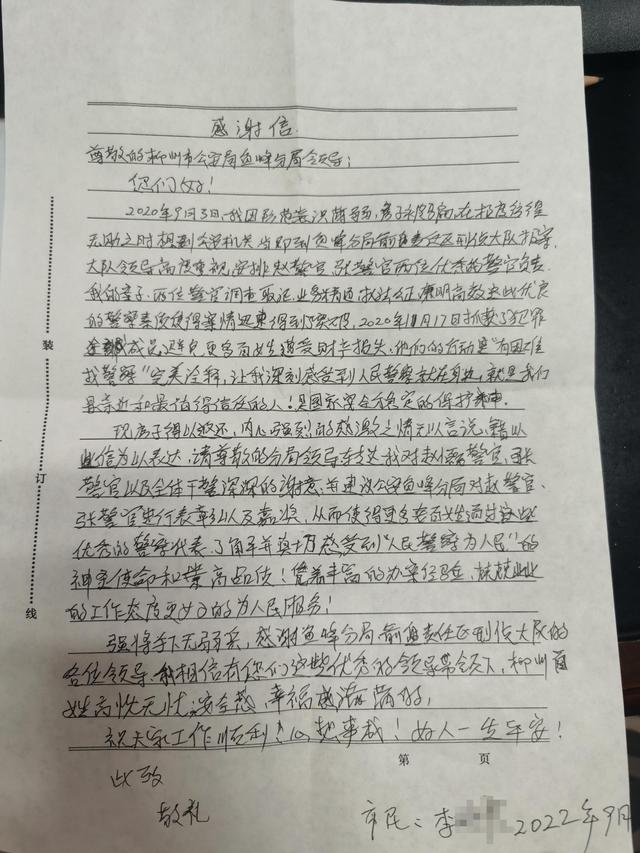 感谢信
尊敬的柳州市公安局鱼峰分局领导:
您们好!
2020年9月3日,我因形势装识薄弱,房子被骗,在极度彷徨
无助之时想到公安机关,当即到鱼峰分局前重责任区刑侦大队报案,
大队领导高度重视,安排赵警官、张警官两位优秀的警官负责
我的案子.两位警官调查取证,业务精通,执法公正,廉明高效
的警察素质使得案情迅速得到突破,2020年11月17日抓获了犯罪
成员,避免更多百姓遭受财产损失,他们的行动是“有困难
找警察”完美诠释,让我深刻感受到人民警察就在身边,就是我们
最亲近和最值得信任的人!是国家安全稳定的保护神.
现房子得以返还,内心强烈的感激之情无以言说,籍以
此信为以表达,请尊敬的分局领导转达我对赵警官、张
警官以及全体干警深深的谢意,并建议公安鱼峰分局对赵警官、
张警官进行表彰以及嘉奖,从而使得更多老百姓通过这些
优秀的警察代表,了解并真切感受到“人民警察为人民”的
神圣使命和崇高品质!凭着丰富的办案经验,兢兢业业
的工作态度更好的为人民服务!
强将手下无弱兵,感谢鱼峰分局前重责任区刑侦大队的
各位领导,我相信有您们这些优秀的领导带领下,柳州百
姓高忱无忧,安全感、幸福感满满的,
祝大家工作顺利!心想事成!好人一生平安!
此致
敬礼
市民:李
2022年9月
装
订
线
第 页